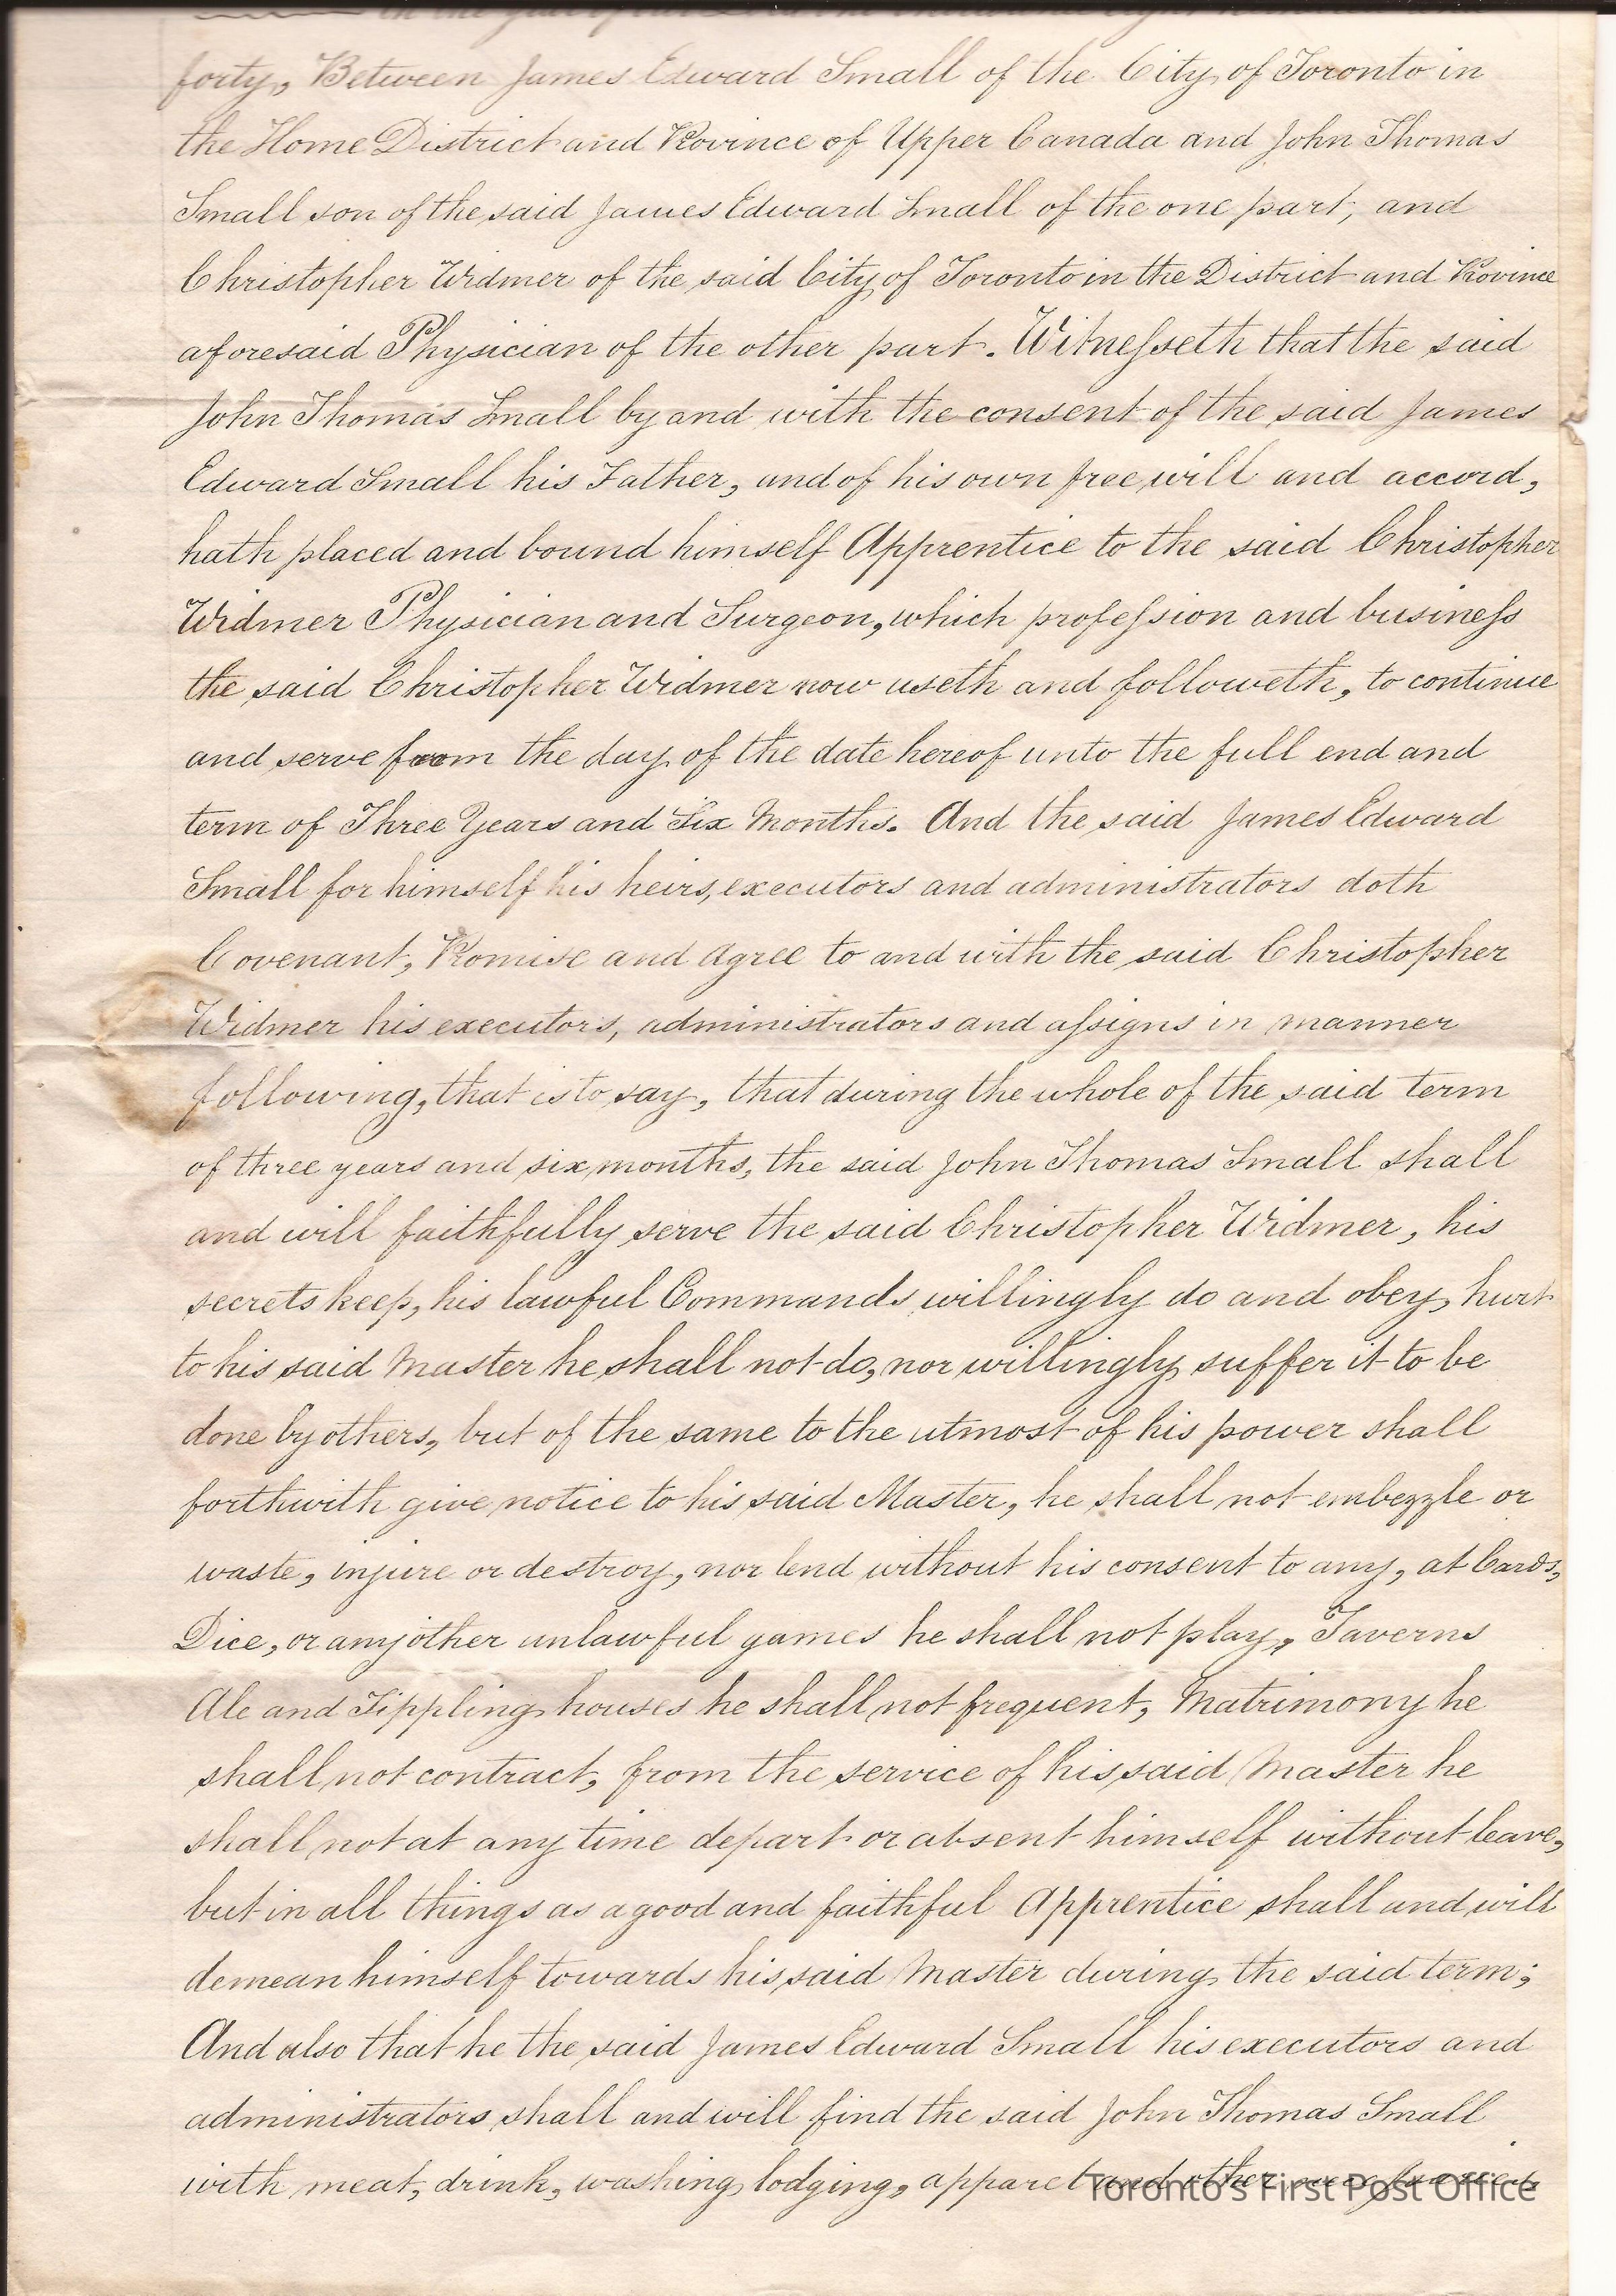 in the year of our Lord one thousand eight hundred and
forty, Between James Edward Small of the City of Toronto in
the Home District and Province of Upper Canada and John Thomas
Small son of the said James Edward Small of the one part, and
Christopher Widmer of the said City of Toronto in the District and Province
aforesaid Physician of the other part. Witnesseth that the said
John Thomas Small by and with the consent of the said James
Edward Small his Father, and of his own free will and accord,
hath placed and bound himself Apprentice to the said Christopher
Widmer Physician and Surgeon, which profession and business
the said Christopher Widmer now useth and followeth, to continue
and serve from the day of the date hereof unto the full end and
term of Three Years and Six Months. And the said James Edward
Small for himself his heirs, executors and administrators doth
Covenant, Promise and Agree to and with the said Christopher
Widmer his executors, administrators and assigns in manner
following, that is to say, that during the whole of the said term
of three years and six months, the said John Thomas Small shall
and will faithfully serve the said Christopher Widmer, his
secrets keep, his lawful Commands willingly do and obey, hurt
to his said Master he shall not do, nor willingly suffer it to be
done by others, but of the same to the utmost of his power shall
forthwith give notice to his said Master, he shall not embezzle or
waste, injure or destroy, nor lend without his consent to any, at Cards,
Dice, or any other unlawful games he shall not play, Taverns
Ale and Tippling houses he shall not frequent, Matrimony he
shall not contract, from the service of his said Master he
shall not at any time depart or absent himself without leave,
but in all things as a good and faithful Apprentice shall and will
demean himself towards his said Master during the said term;
And also that he the said James Edward Small his executors and
administrators shall and will find the said John Thomas Small
with meat, drink, washing, lodging, apparel and other
Toronto's First Post Office